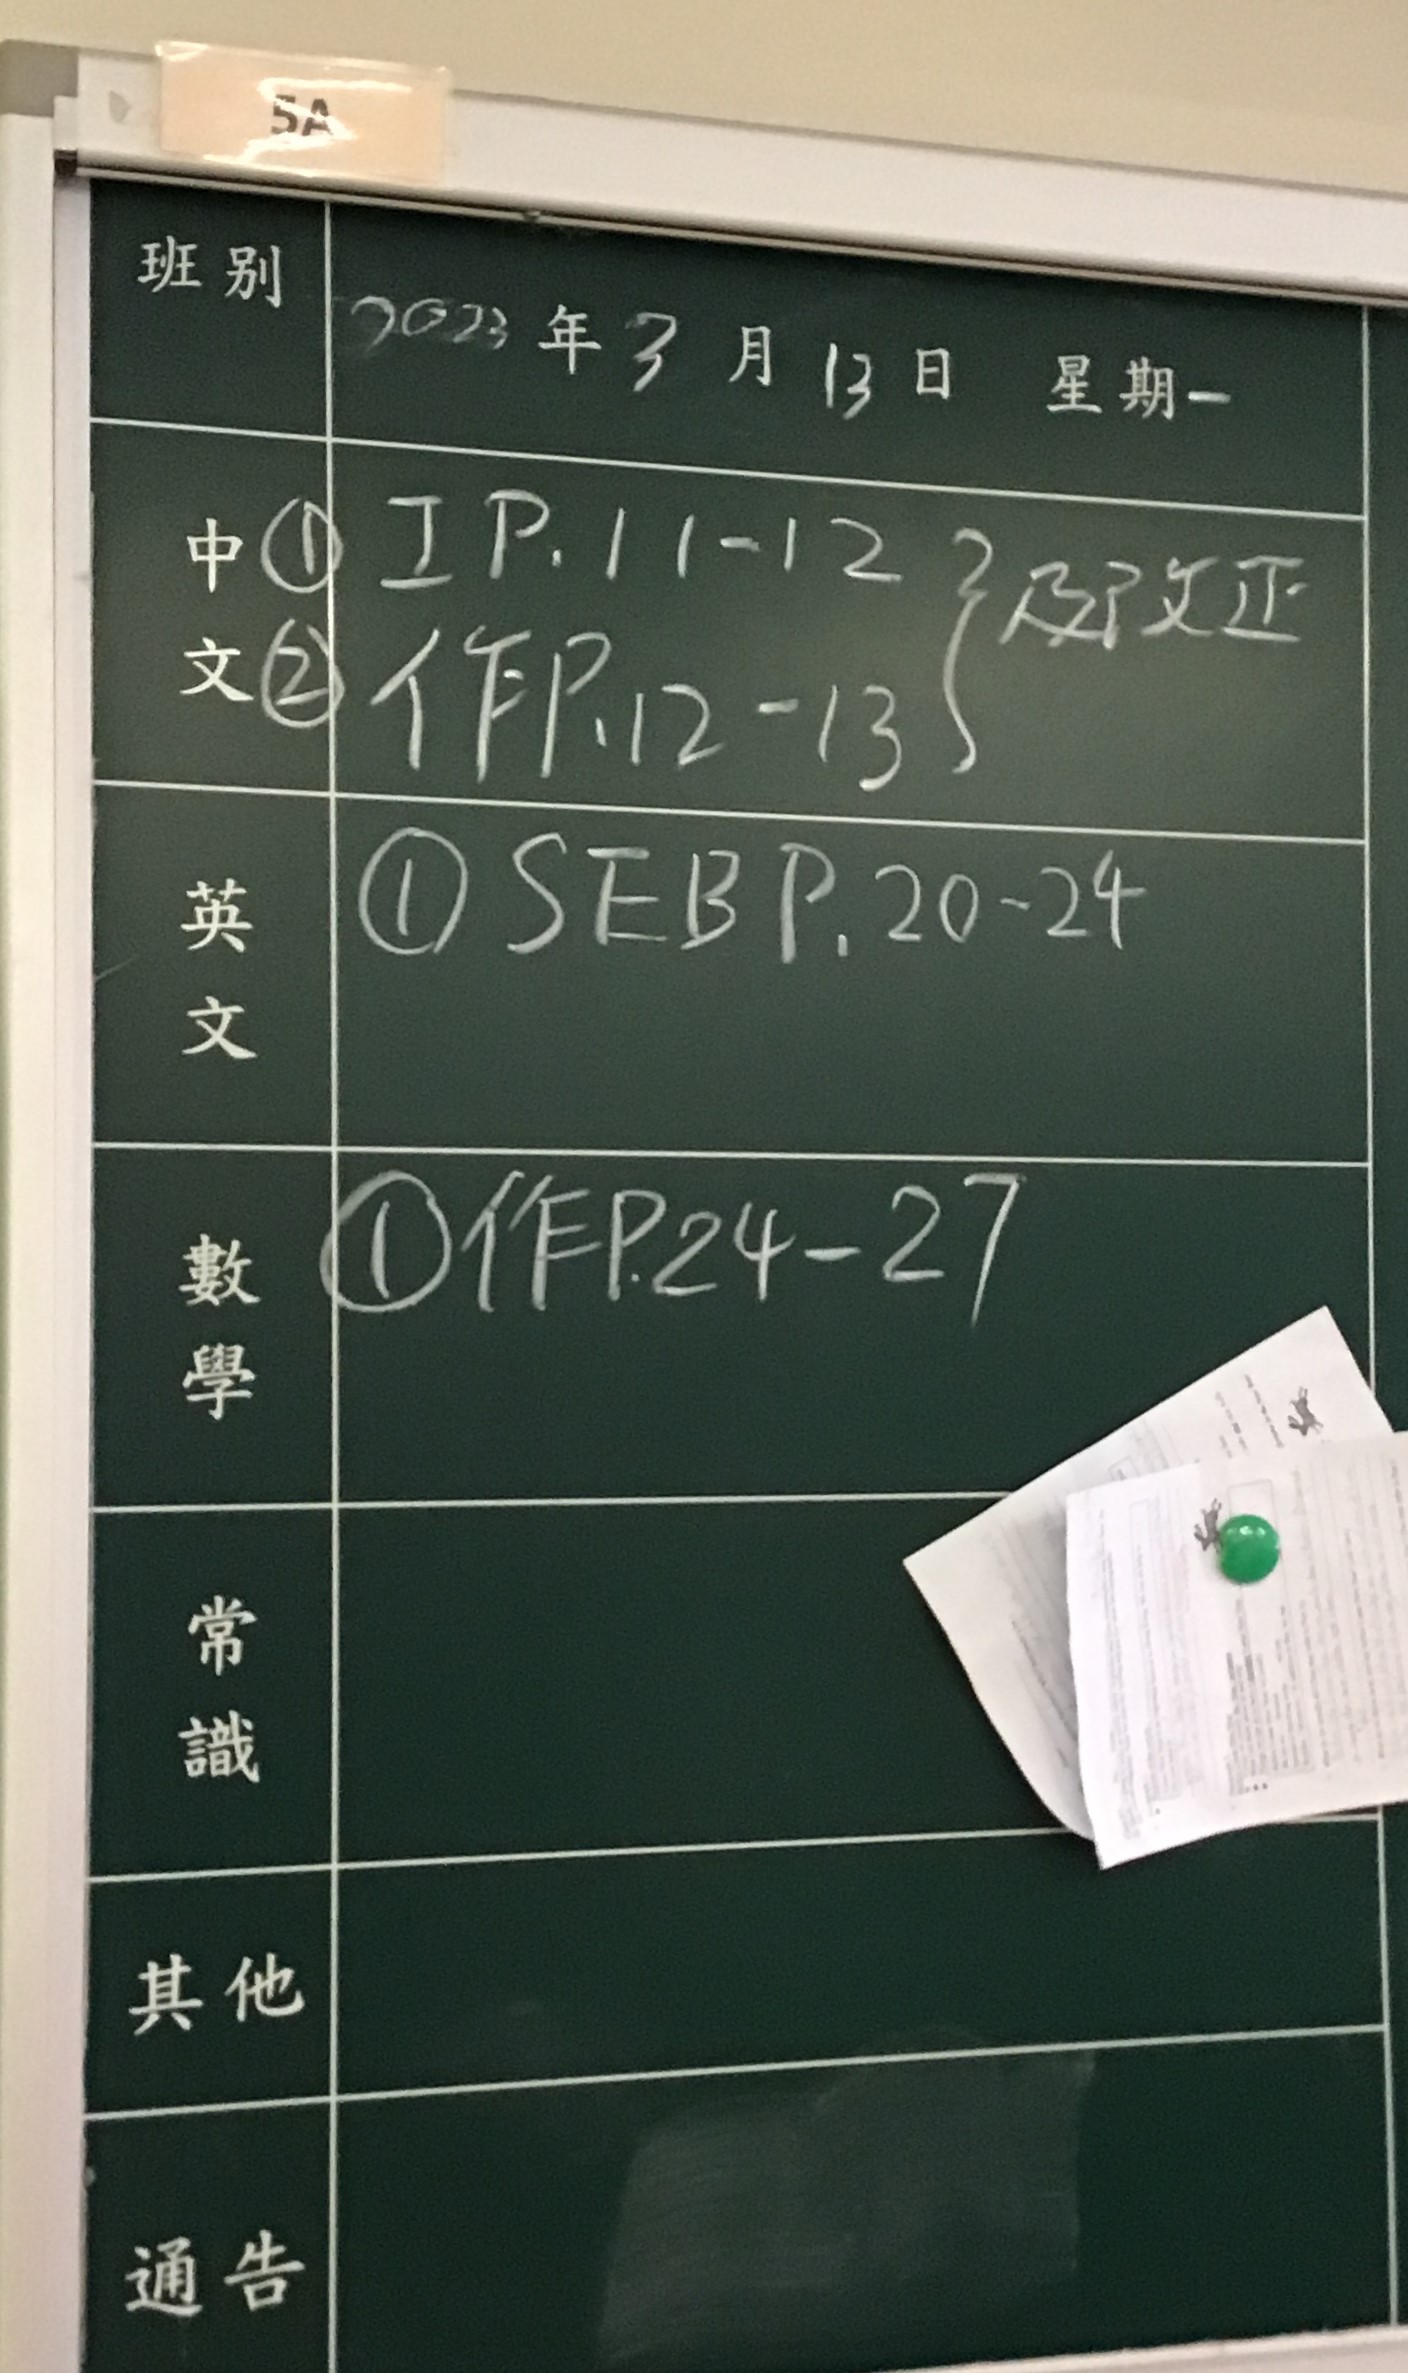 5A
班別
2023年3月13日 星期一
中文
① 工 P.11-12
② 作P.12-13
及改正
英文
① SEB P.20-24
數學
① 作P.24-27
常識
其他
通告